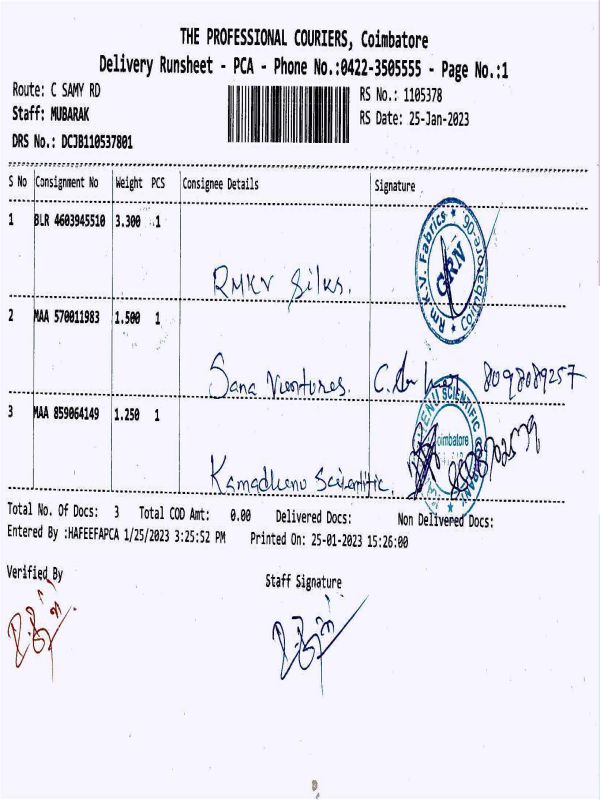 THE PROFESSIONAL COURIERS, Coimbatore
Delivery Runsheet - PCA - Phone No.:0422-3505555 - Page No.:1
Route: C SAMY RD
RS No.: 1105378
Staff: MUBARAK
RS Date: 25-Jan-2023
DRS No.: DCJB110537801
S No Consignment No Weight PCS Consignee Details Signature
1 BLR 4603945510 3.300 1
RMKV Silks.
Rm.K.V. Fabrics Coimbatore-06. GRN
2 MAA 570011983 1.500 1
Sana Ventures. 8098089257
3 MAA 859064149 1.250 1
Kamadhenu Scientific.
SCIENTIFIC
Coimbatore
Total No. Of Docs: 3 Total COD Amt: 0.00 Delivered Docs: Non Delivered Docs:
Entered By :HAFEEFAPCA 1/25/2023 3:25:52 PM Printed On: 25-01-2023 15:26:00
Verified By
Staff Signature